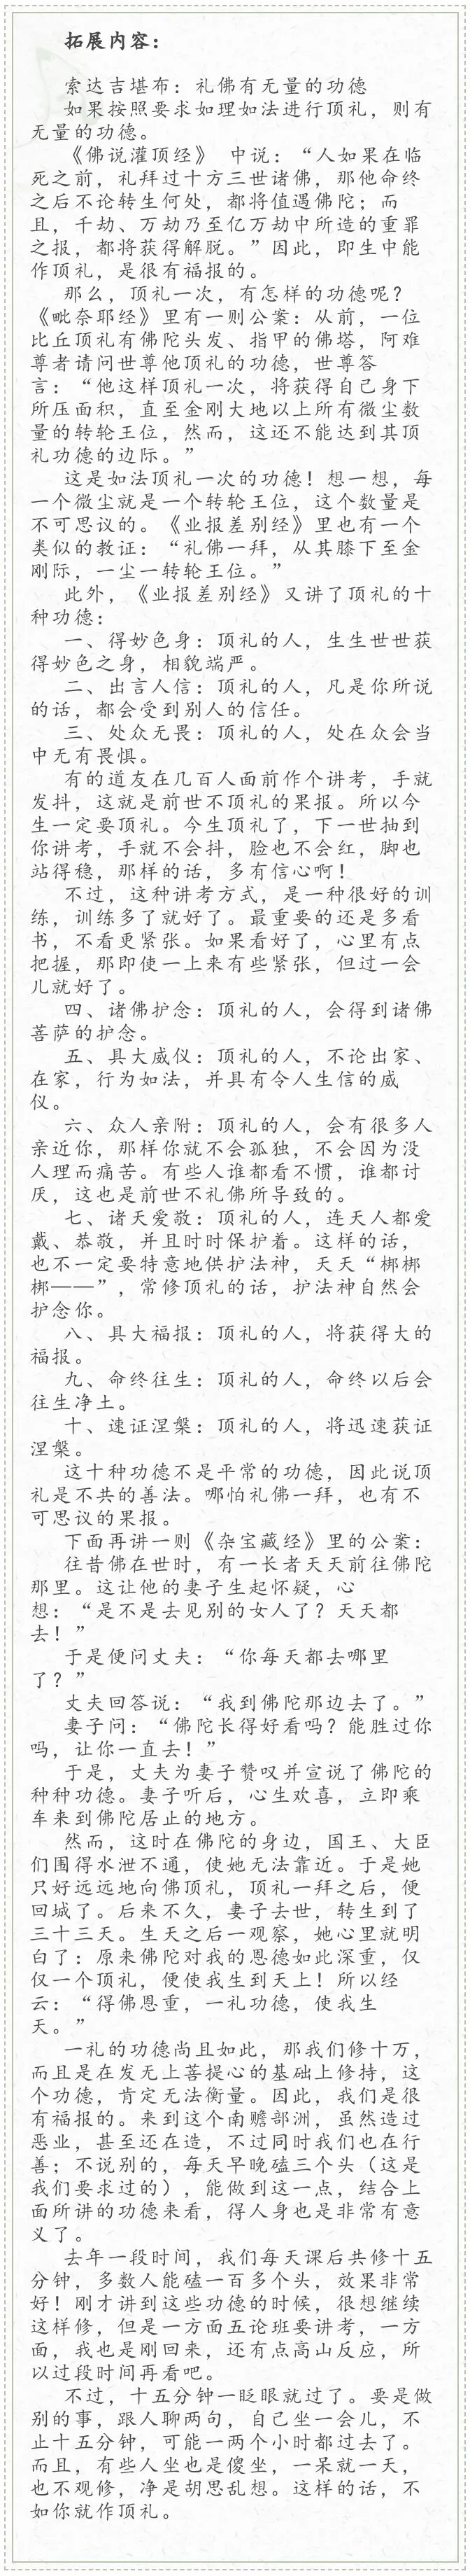 拓展内容：
索达吉堪布：礼佛有无量的功德
如果按照要求如理如法进行顶礼，则有
无量的功德。
《佛说灌顶经》 中说：“人如果在临
死之前，礼拜过十方三世诸佛，那他命终
之后不论转生何处，都将值遇佛陀；而
且，千劫、万劫乃至亿万劫中所造的重罪
之报，都将获得解脱。”因此，即生中能
作顶礼，是很有福报的。
那么，顶礼一次，有怎样的功德呢？
《毗奈耶经》里有一则公案：从前，一位
比丘顶礼有佛陀头发、指甲的佛塔，阿难
尊者请问世尊他顶礼的功德，世尊答
言：“他这样顶礼一次，将获得自己身下
所压面积，直至金刚大地以上所有微尘数
量的转轮王位，然而，这还不能达到其顶
礼功德的边际。”
这是如法顶礼一次的功德！想一想，每
一个微尘就是一个转轮王位，这个数量是
不可思议的。《业报差别经》里也有一个
类似的教证：“礼佛一拜，从其膝下至金
刚际，一尘一转轮王位。”
此外，《业报差别经》又讲了顶礼的十
种功德：
一、得妙色身：顶礼的人，生生世世获
得妙色之身，相貌端严。
二、出言人信：顶礼的人，凡是你所说
的话，都会受到别人的信任。
三、处众无畏：顶礼的人，处在众会当
中无有畏惧。
有的道友在几百人面前作个讲考，手就
发抖，这就是前世不顶礼的果报。所以今
生一定要顶礼。今生顶礼了，下一世抽到
你讲考，手就不会抖，脸也不会红，脚也
站得稳，那样的话，多有信心啊！
不过，这种讲考方式，是一种很好的训
练，训练多了就好了。最重要的还是多看
书，不看更紧张。如果看好了，心里有点
把握，那即使一上来有些紧张，但过一会
儿就好了。
四、诸佛护念：顶礼的人，会得到诸佛
菩萨的护念。
五、具大威仪：顶礼的人，不论出家、
在家，行为如法，并具有令人生信的威
仪。
六、众人亲附：顶礼的人，会有很多人
亲近你，那样你就不会孤独，不会因为没
人理而痛苦。有些人谁都看不惯，谁都讨
厌，这也是前世不礼佛所导致的。
七、诸天爱敬：顶礼的人，连天人都爱
戴、恭敬，并且时时保护着。这样的话，
也不一定要特意地供护法神，天天“梆梆
梆——”，常修顶礼的话，护法神自然会
护念你。
八、具大福报：顶礼的人，将获得大的
福报。
九、命终往生：顶礼的人，命终以后会
往生净土。
十、速证涅槃：顶礼的人，将迅速获证
涅槃。
这十种功德不是平常的功德，因此说顶
礼是不共的善法。哪怕礼佛一拜，也有不
可思议的果报。
下面再讲一则《杂宝藏经》里的公案：
往昔佛在世时，有一长者天天前往佛陀
那里。这让他的妻子生起怀疑，心
想：“是不是去见别的女人了？天天都
去！”
于是便问丈夫：“你每天都去哪里
了？”
丈夫回答说：“我到佛陀那边去了。”
妻子问：“佛陀长得好看吗？能胜过你
吗，让你一直去！”
于是，丈夫为妻子赞叹并宣说了佛陀的
种种功德。妻子听后，心生欢喜，立即乘
车来到佛陀居止的地方。
然而，这时在佛陀的身边，国王、大臣
们围得水泄不通，使她无法靠近。于是她
只好远远地向佛顶礼，顶礼一拜之后，便
回城了。后来不久，妻子去世，转生到了
三十三天。生天之后一观察，她心里就明
白了：原来佛陀对我的恩德如此深重，仅
仅一个顶礼，便使我生到天上！所以经
云：“得佛恩重，一礼功德，使我生
天。”
一礼的功德尚且如此，那我们修十万，
而且是在发无上菩提心的基础上修持，这
个功德，肯定无法衡量。因此，我们是很
有福报的。来到这个南赡部洲，虽然造过
恶业，甚至还在造，不过同时我们也在行
善；不说别的，每天早晚磕三个头（这是
我们要求过的），能做到这一点，结合上
面所讲的功德来看，得人身也是非常有意
义了。
去年一段时间，我们每天课后共修十五
分钟，多数人能磕一百多个头，效果非常
好！刚才讲到这些功德的时候，很想继续
这样修，但是一方面五论班要讲考，一方
面，我也是刚回来，还有点高山反应，所
以过段时间再看吧。
不过，十五分钟一眨眼就过了。要是做
别的事，跟人聊两句，自己坐一会儿，不
止十五分钟，可能一两个小时都过去了。
而且，有些人坐也是傻坐，一呆就一天，
也不观修，净是胡思乱想。这样的话，不
如你就作顶礼。